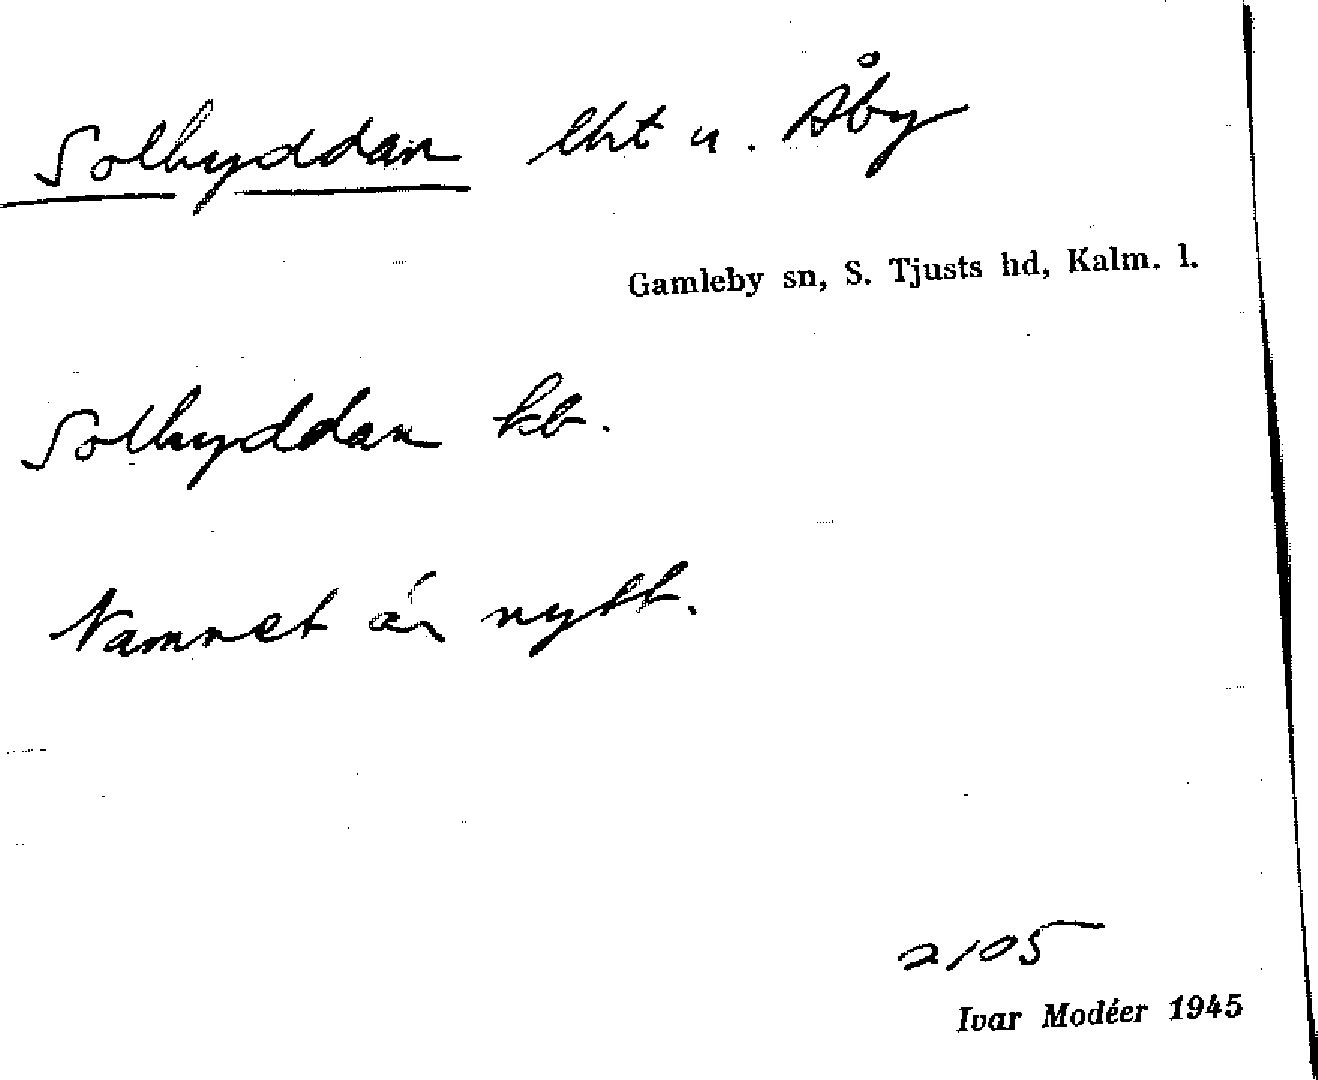 Solhyddan lht u. Åby
Gamleby sn, S. Tjusts hd, Kalm. l.
Solhyddan kb.
Namnet är nytt.
2105
Ivar Modéer 1945